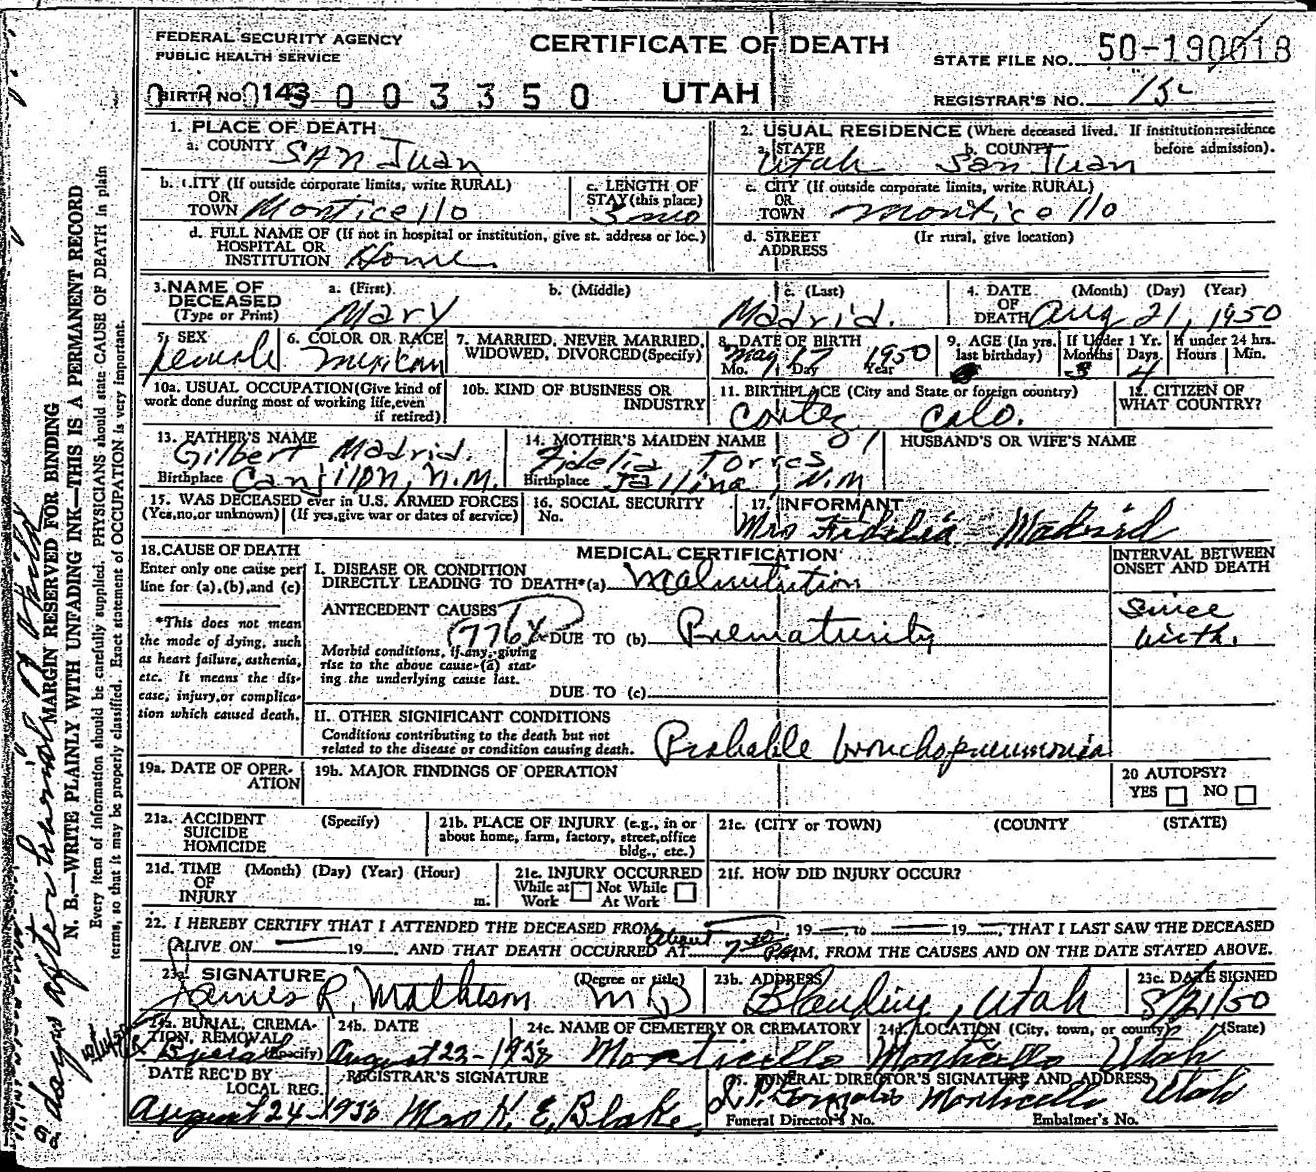 FEDERAL SECURITY AGENCY
PUBLIC HEALTH SERVICE
CERTIFICATE OF DEATH
STATE FILE NO. 50-190018
BIRTH NO. 143
003350
UTAH
REGISTRAR'S NO. 15
1. PLACE OF DEATH
a. COUNTY San Juan
2. USUAL RESIDENCE (Where deceased lived. If institution:residence before admission).
a. STATE Utah b. COUNTY San Juan
b. CITY (If outside corporate limits, write RURAL) OR TOWN Monticello
c. LENGTH OF STAY (this place) 3 mo
c. CITY (If outside corporate limits, write RURAL) OR TOWN Monticello
d. FULL NAME OF (If not in hospital or institution, give st. address or loc.) HOSPITAL OR INSTITUTION Home
d. STREET ADDRESS (If rural, give location)
3. NAME OF DECEASED (Type or Print)
a. (First) Mary
b. (Middle)
c. (Last) Madrid.
4. DATE OF DEATH (Month) (Day) (Year) Aug 21, 1950
5. SEX female
6. COLOR OR RACE Mexican
7. MARRIED, NEVER MARRIED, WIDOWED, DIVORCED(Specify)
8. DATE OF BIRTH May 17 1950
Mo. Day Year
9. AGE (In yrs. last birthday)
If Under 1 Yr. Months 3 Days 4
If under 24 hrs. Hours Min.
10a. USUAL OCCUPATION(Give kind of work done during most of working life,even if retired)
10b. KIND OF BUSINESS OR INDUSTRY
11. BIRTHPLACE (City and State or foreign country) Cortez Colo.
12. CITIZEN OF WHAT COUNTRY?
13. FATHER'S NAME Gilbert Madrid.
Birthplace Canjilon, N.M.
14. MOTHER'S MAIDEN NAME Fidelia Torres
Birthplace N.M
HUSBAND'S OR WIFE'S NAME
15. WAS DECEASED ever in U.S. ARMED FORCES
(Yes,no,or unknown) (If yes,give war or dates of service)
16. SOCIAL SECURITY No.
17. INFORMANT Mrs Fidelia Madrid
18. CAUSE OF DEATH
Enter only one cause per line for (a),(b),and (c)
*This does not mean the mode of dying, such as heart failure, asthenia, etc. It means the disease, injury,or complication which caused death.
MEDICAL CERTIFICATION
INTERVAL BETWEEN ONSET AND DEATH
I. DISEASE OR CONDITION DIRECTLY LEADING TO DEATH*(a) Malnutrition
ANTECEDENT CAUSES
776X
DUE TO (b) Prematurity
Since birth.
Morbid conditions, if any, giving rise to the above cause (a) stating the underlying cause last.
DUE TO (c)
II. OTHER SIGNIFICANT CONDITIONS
Conditions contributing to the death but not related to the disease or condition causing death.
Probable bronchopneumonia
19a. DATE OF OPERATION
19b. MAJOR FINDINGS OF OPERATION
20 AUTOPSY?
YES NO
21a. ACCIDENT SUICIDE HOMICIDE (Specify)
21b. PLACE OF INJURY (e.g., in or about home, farm, factory, street,office bldg., etc.)
21c. (CITY or TOWN) (COUNTY) (STATE)
21d. TIME OF INJURY (Month) (Day) (Year) (Hour) m.
21e. INJURY OCCURRED
While at Work Not While At Work
21f. HOW DID INJURY OCCUR?
22. I HEREBY CERTIFY THAT I ATTENDED THE DECEASED FROM 19 , to 19 , THAT I LAST SAW THE DECEASED
ALIVE ON 19 . AND THAT DEATH OCCURRED AT About 7:30 P.M, FROM THE CAUSES AND ON THE DATE STATED ABOVE.
23a. SIGNATURE James R. Matheson (Degree or title) MD
23b. ADDRESS Blanding, Utah
23c. DATE SIGNED 8/21/50
24a. BURIAL, CREMATION, REMOVAL (Specify) Burial
24b. DATE August 23-1950
24c. NAME OF CEMETERY OR CREMATORY Monticello
24d. LOCATION (City, town, or county) (State) Monticello Utah
DATE REC'D BY LOCAL REG. August 24-1950
REGISTRAR'S SIGNATURE Mrs K. E. Blake
25. FUNERAL DIRECTOR'S SIGNATURE AND ADDRESS Monticello Utah
Funeral Director's No. Embalmer's No.
MARGIN RESERVED FOR BINDING
N. B.—WRITE PLAINLY WITH UNFADING INK—THIS IS A PERMANENT RECORD
Every item of information should be carefully supplied. PHYSICIANS should state CAUSE OF DEATH in plain
terms, so that it may be properly classified. Exact statement of OCCUPATION is very important.